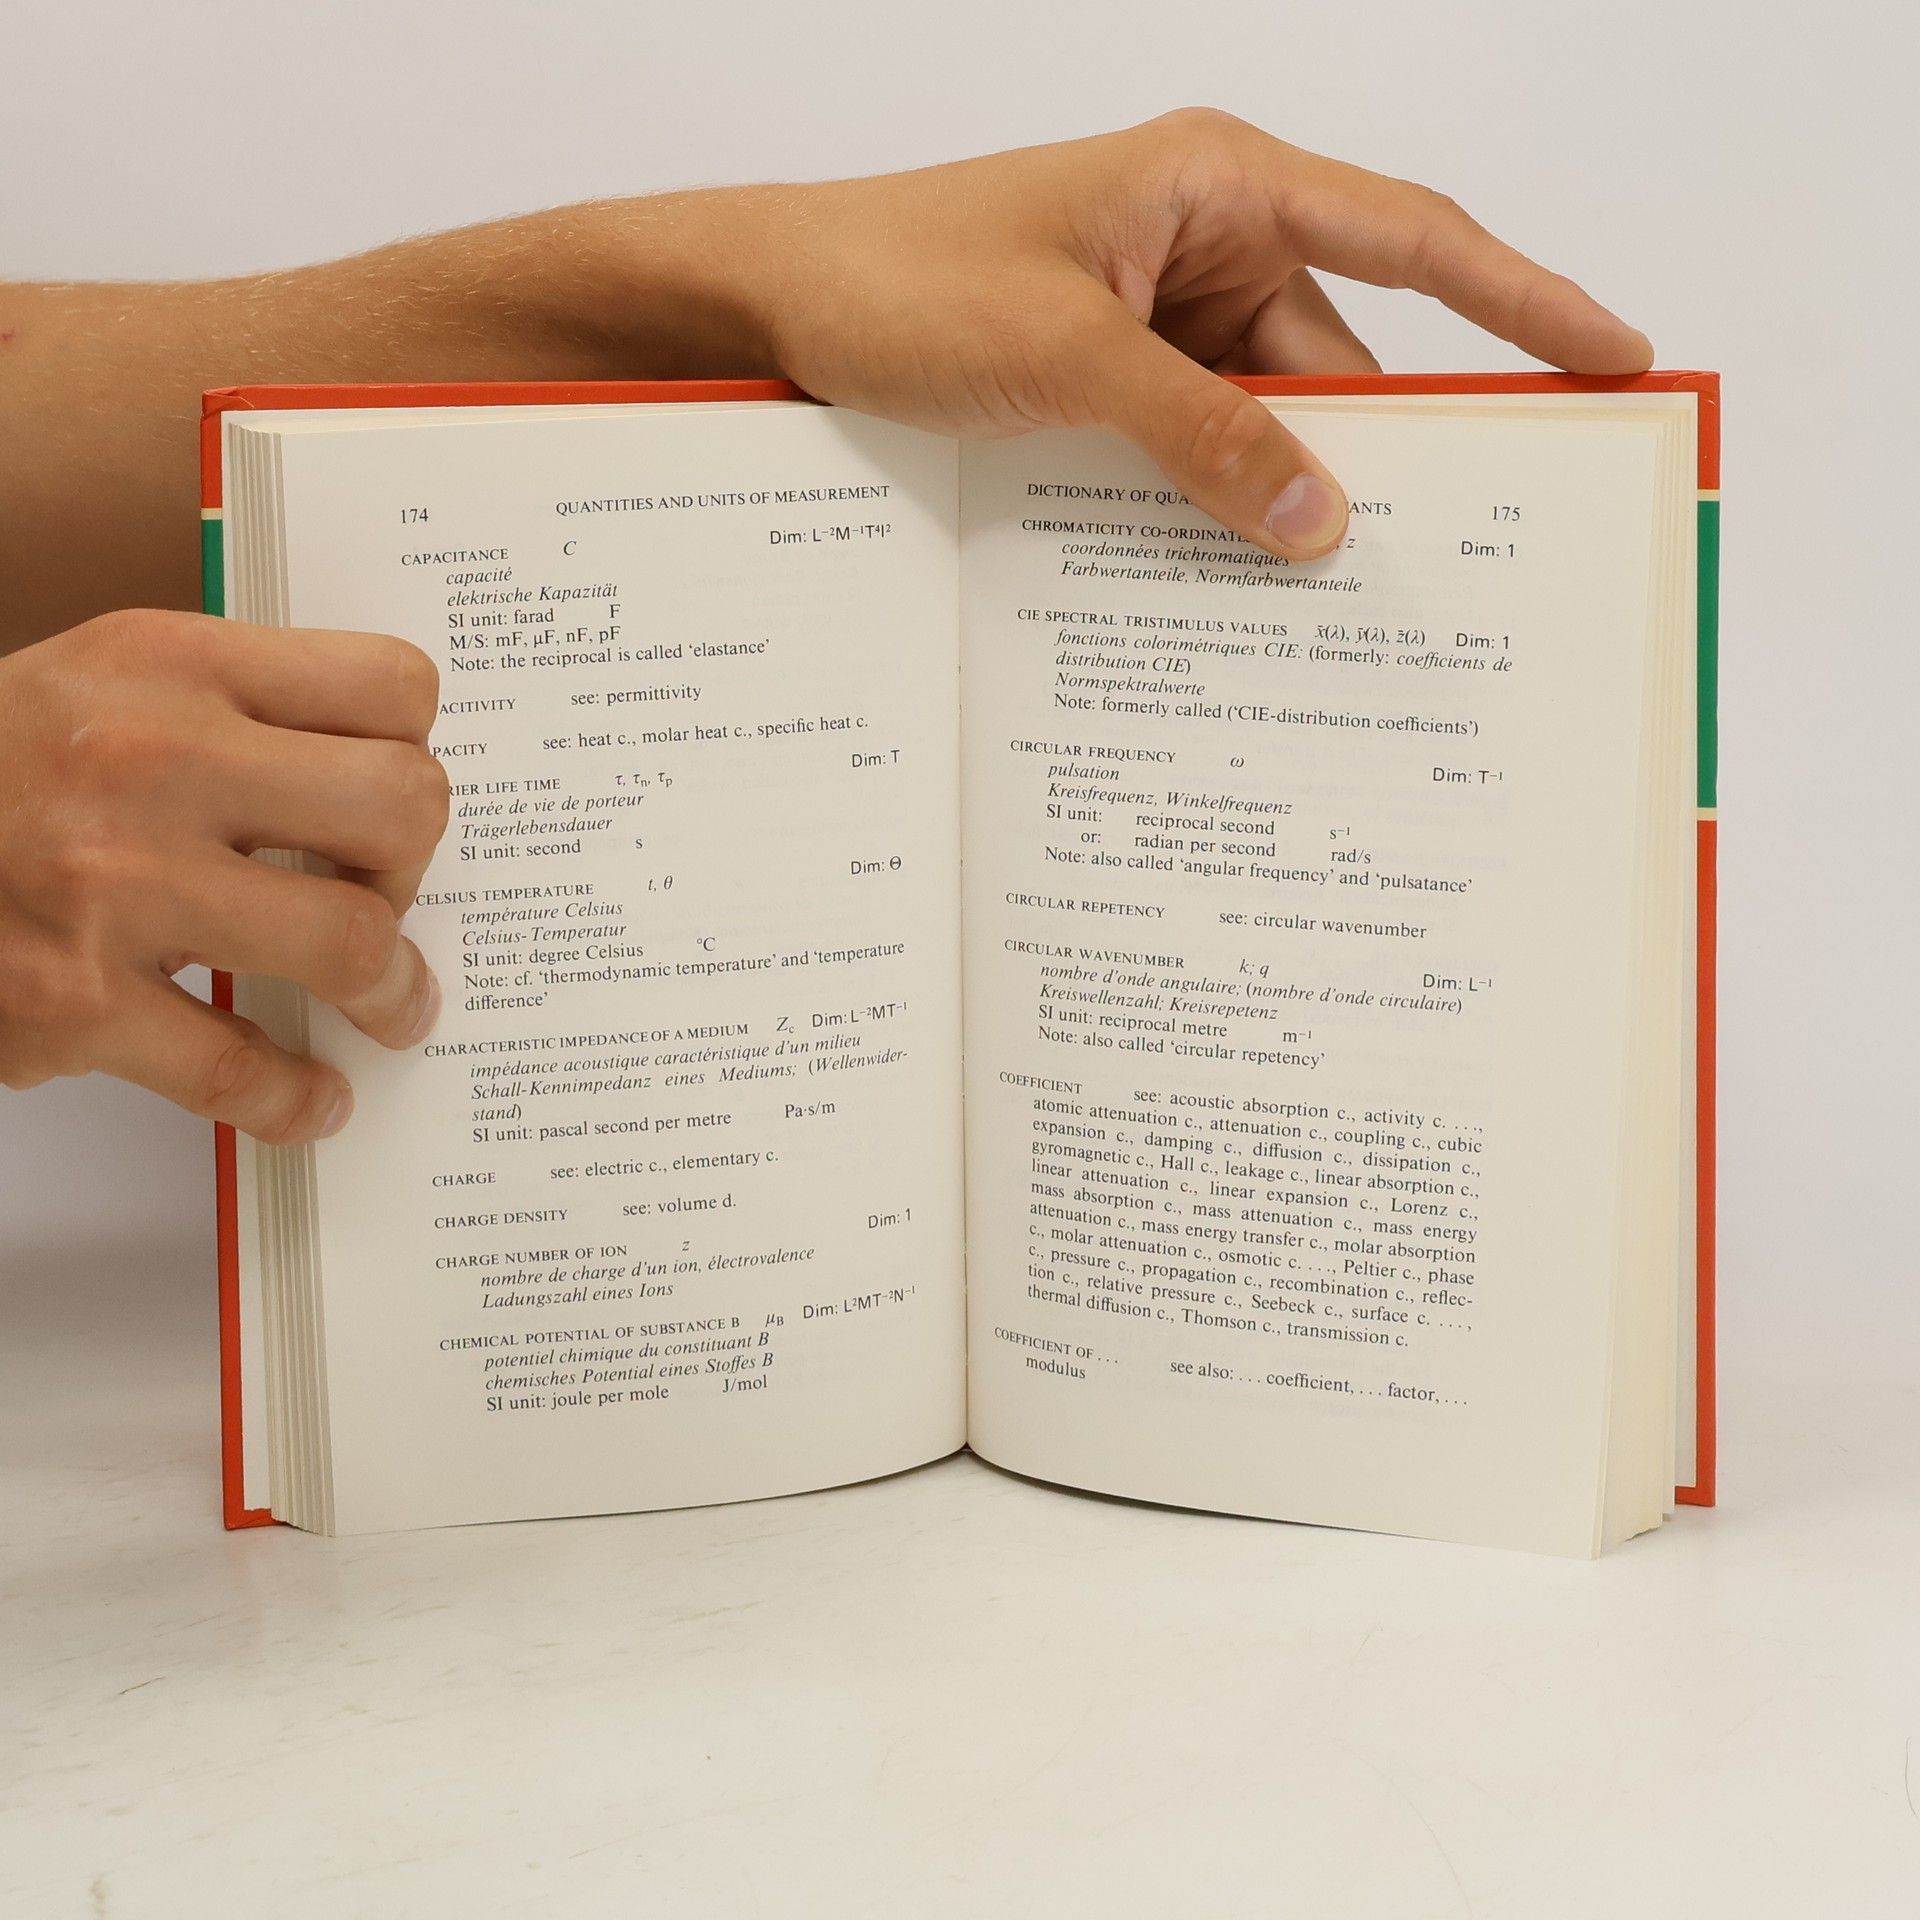 174 QUANTITIES AND UNITS OF MEASUREMENT
CAPACITANCE C Dim: L⁻²M⁻¹T⁴I²
capacité
elektrische Kapazität
SI unit: farad F
M/S: mF, μF, nF, pF
Note: the reciprocal is called ‘elastance’
ACITIVITY see: permittivity
PACITY see: heat c., molar heat c., specific heat c.
RIER LIFE TIME τ, τₙ, τₚ Dim: T
durée de vie de porteur
Trägerlebensdauer
SI unit: second s
CELSIUS TEMPERATURE t, θ Dim: Θ
température Celsius
Celsius-Temperatur
SI unit: degree Celsius °C
Note: cf. ‘thermodynamic temperature’ and ‘temperature
difference’
CHARACTERISTIC IMPEDANCE OF A MEDIUM Z_c Dim: L⁻²MT⁻¹
impédance acoustique caractéristique d’un milieu
Schall-Kennimpedanz eines Mediums; (Wellenwider-
stand)
SI unit: pascal second per metre Pa·s/m
CHARGE see: electric c., elementary c.
CHARGE DENSITY see: volume d.
CHARGE NUMBER OF ION z Dim: 1
nombre de charge d’un ion, électrovalence
Ladungszahl eines Ions
CHEMICAL POTENTIAL OF SUBSTANCE B μ_B Dim: L²MT⁻²N⁻¹
potentiel chimique du constituant B
chemisches Potential eines Stoffes B
SI unit: joule per mole J/mol
DICTIONARY OF QUA ANTS 175
CHROMATICITY CO-ORDINAT , z Dim: 1
coordonnées trichromatiques
Farbwertanteile, Normfarbwertanteile
CIE SPECTRAL TRISTIMULUS VALUES x̄(λ), ȳ(λ), z̄(λ) Dim: 1
fonctions colorimétriques CIE: (formerly: coefficients de
distribution CIE)
Normspektralwerte
Note: formerly called (‘CIE-distribution coefficients’)
CIRCULAR FREQUENCY ω Dim: T⁻¹
pulsation
Kreisfrequenz, Winkelfrequenz
SI unit: reciprocal second s⁻¹
or: radian per second rad/s
Note: also called ‘angular frequency’ and ‘pulsatance’
CIRCULAR REPETENCY see: circular wavenumber
CIRCULAR WAVENUMBER k; q Dim: L⁻¹
nombre d’onde angulaire; (nombre d’onde circulaire)
Kreiswellenzahl; Kreisrepetenz
SI unit: reciprocal metre m⁻¹
Note: also called ‘circular repetency’
COEFFICIENT see: acoustic absorption c., activity c. ...,
atomic attenuation c., attenuation c., coupling c., cubic
expansion c., damping c., diffusion c., dissipation c.,
gyromagnetic c., Hall c., leakage c., linear absorption c.,
linear attenuation c., linear expansion c., Lorenz c.,
mass absorption c., mass attenuation c., mass energy
attenuation c., mass energy transfer c., molar absorption
c., molar attenuation c., osmotic c. ..., Peltier c., phase
c., pressure c., propagation c., recombination c., reflec-
tion c., relative pressure c., Seebeck c., surface c. ...,
thermal diffusion c., Thomson c., transmission c.
COEFFICIENT OF ... see also: ... coefficient, ... factor, ...
modulus